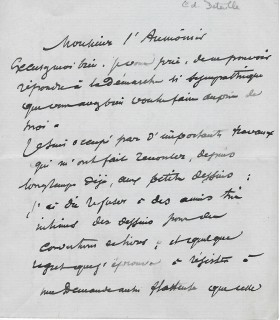 Ed. Detaille
Monsieur l'Aumonier
Excusez moi bien, je vous prie, de ne pouvoir
répondre à la démarche si sympathique
que vous avez bien voulu faire auprès de
moi.
Je suis occupé par d'importants travaux
qui m'ont fait renoncer, depuis
longtemps déjà, aux petits dessins ;
j'ai dû refuser à des amis très
intimes des dessins pour des
et quelque
regret que j'éprouve à résister à
une demande aussi flatteuse que celle